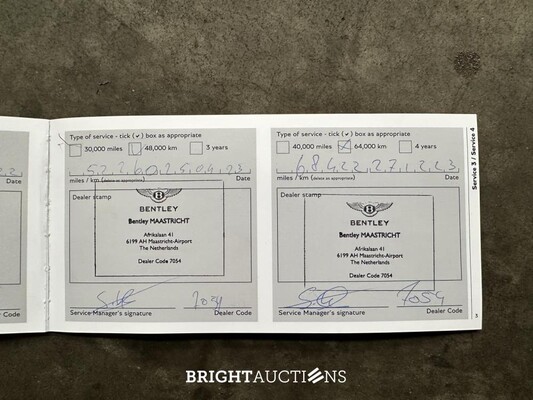 Type of service - tick (✓) box as appropriate
30,000 miles 48,000 km 3 years
52260 25 04 23
miles / km (delete as appropriate) Date
Dealer stamp
BENTLEY
Bentley MAASTRICHT
Afrikalaan 41
6199 AH Maastricht-Airport
The Netherlands
Dealer Code 7054
Service Manager's signature Dealer Code
Type of service - tick (✓) box as appropriate
40,000 miles 64,000 km 4 years
68422 27 12 23
miles / km (delete as appropriate) Date
Dealer stamp
BENTLEY
Bentley MAASTRICHT
Afrikalaan 41
6199 AH Maastricht-Airport
The Netherlands
Dealer Code 7054
7054
Service Manager's signature Dealer Code
Service 3 / Service 4
3
Date
Code
BRIGHTAUCTIONS